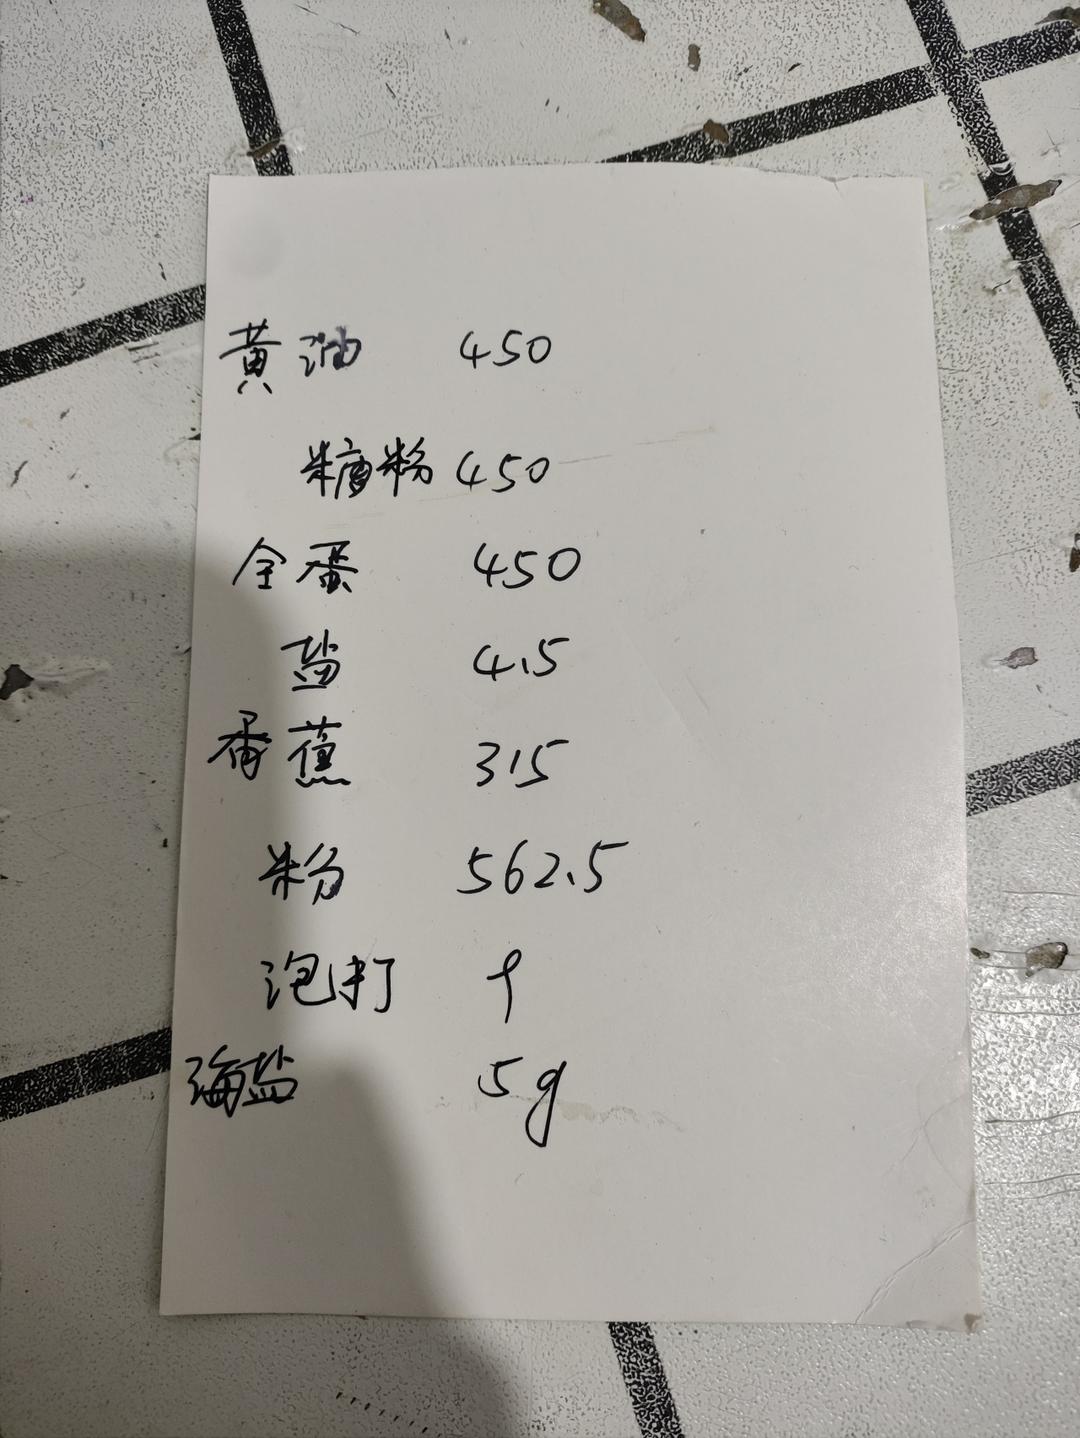 黄油 450
糖粉 450
全蛋 450
盐 4.5
香蕉 315
粉 562.5
泡打 9
海盐 5g